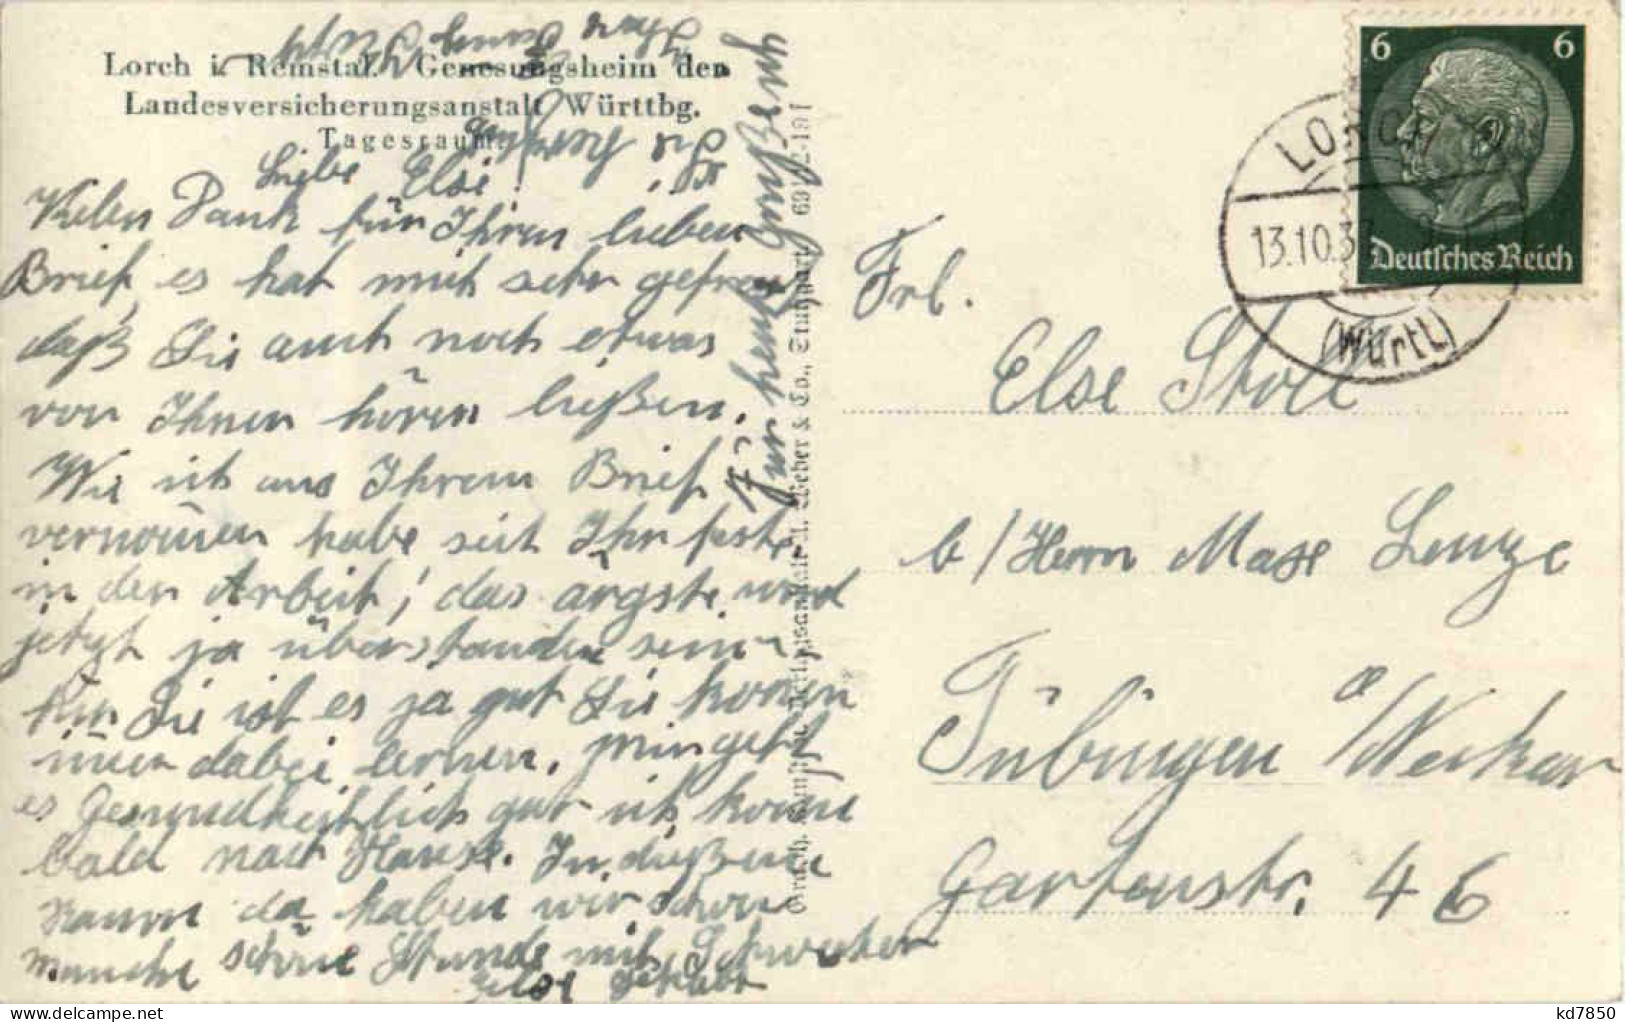 Lorch i. Remstal. Genesungsheim der
Landesversicherungsanstalt Württbg.
Tagesraum
Liebe Else!
Vielen Dank für Ihren lieben
Brief, es hat mich sehr gefreut
daß Sie auch noch etwas
von Ihnen hören ließen.
Wie ich aus Ihrem Brief
vernom̅en habe seit Ihr feste
in der Arbeit, das ärgste wird
jetzt ja überstanden sein
Für Sie ist es ja gut Sie kön̅en
im̅er dabei lernen. Mir geht
es Gesundheitlich gut ich kom̅e
bald nach Hause. In dießem
Raum da haben wir schon
manche schöne Stunde mit Schwester
Else gehabt
Für heute
grüßt
6 6
Deutsches Reich
LORCH
13.10.3
(Württ.)
Frl.
Else Stoll
b/Herrn Max Lenze
Tübingen a/Neckar
Gartenstr. 46
kd7850